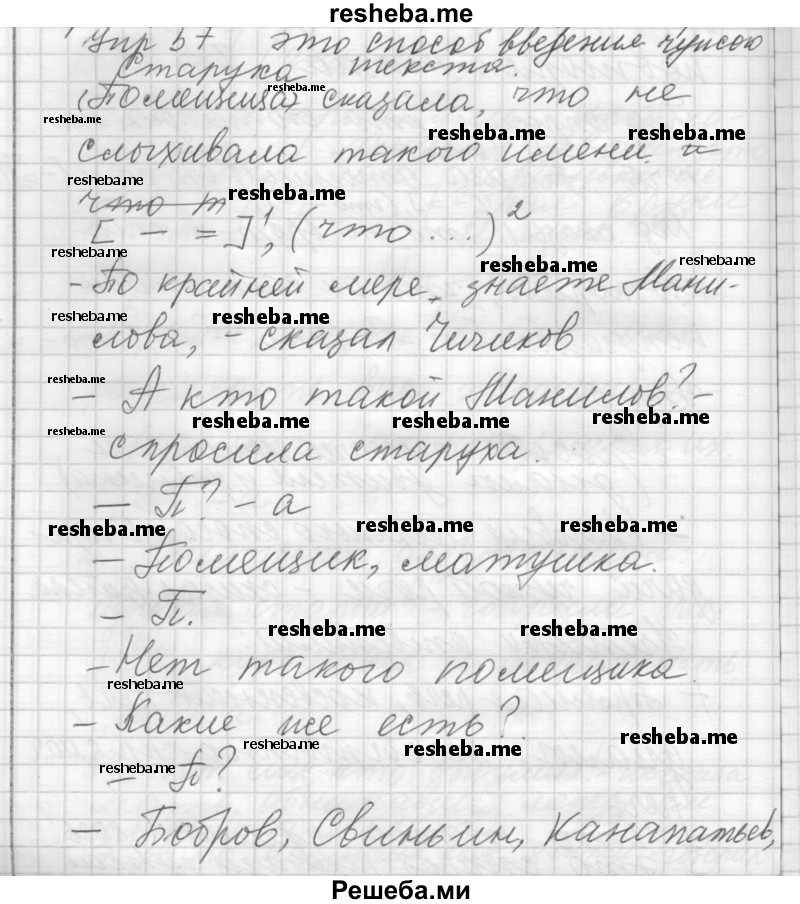 resheba.me
Упр 57 это способ введения чужого
Старуха текста.
resheba.me
(Помещица) сказала, что не
resheba.me
resheba.me resheba.me
слыхивала такого имени. и
resheba.me
resheba.me
что т
[ – = ]¹, (что ...)²
resheba.me
resheba.me resheba.me
- По крайней мере, знаете Мани-
resheba.me resheba.me
лова, - сказал Чичиков
resheba.me
- А кто такой Манилов? -
resheba.me resheba.me resheba.me
resheba.me
спросила старуха.
- П? - а
resheba.me resheba.me resheba.me
- Помещик, матушка.
- П.
resheba.me resheba.me
- Нет такого помещика.
resheba.me
- Какие же есть?
resheba.me resheba.me resheba.me
resheba.me
- П?
- Бобров, Свиньин, Канапатьев,
Решеба.ми